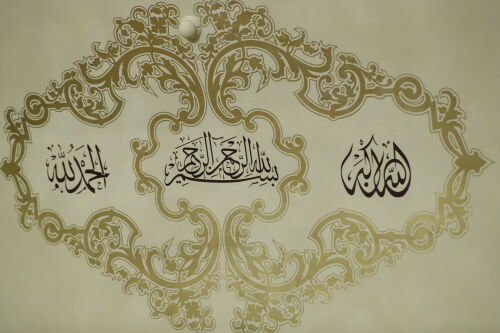 الله أكبر
بسم الله الرحمن الرحيم
الحمد لله